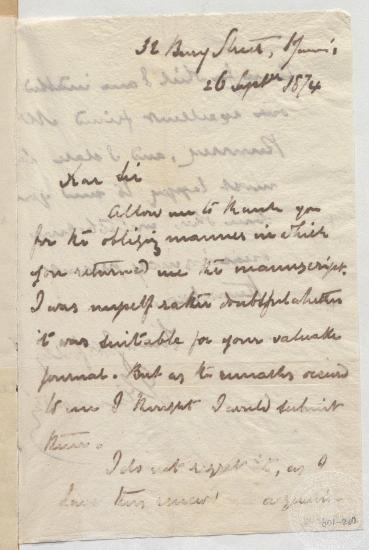 32 Bury Street, St James's
26 Septr 1874
Dear Sir
Allow me to thank you
for the obliging manner in which
you returned me the manuscript.
I was myself rather doubtful whether
it was suitable for your valuable
journal. But as the remarks occurred
to me I thought I would submit
them.
I do not regret it, as I
have thus renewed an acquain-